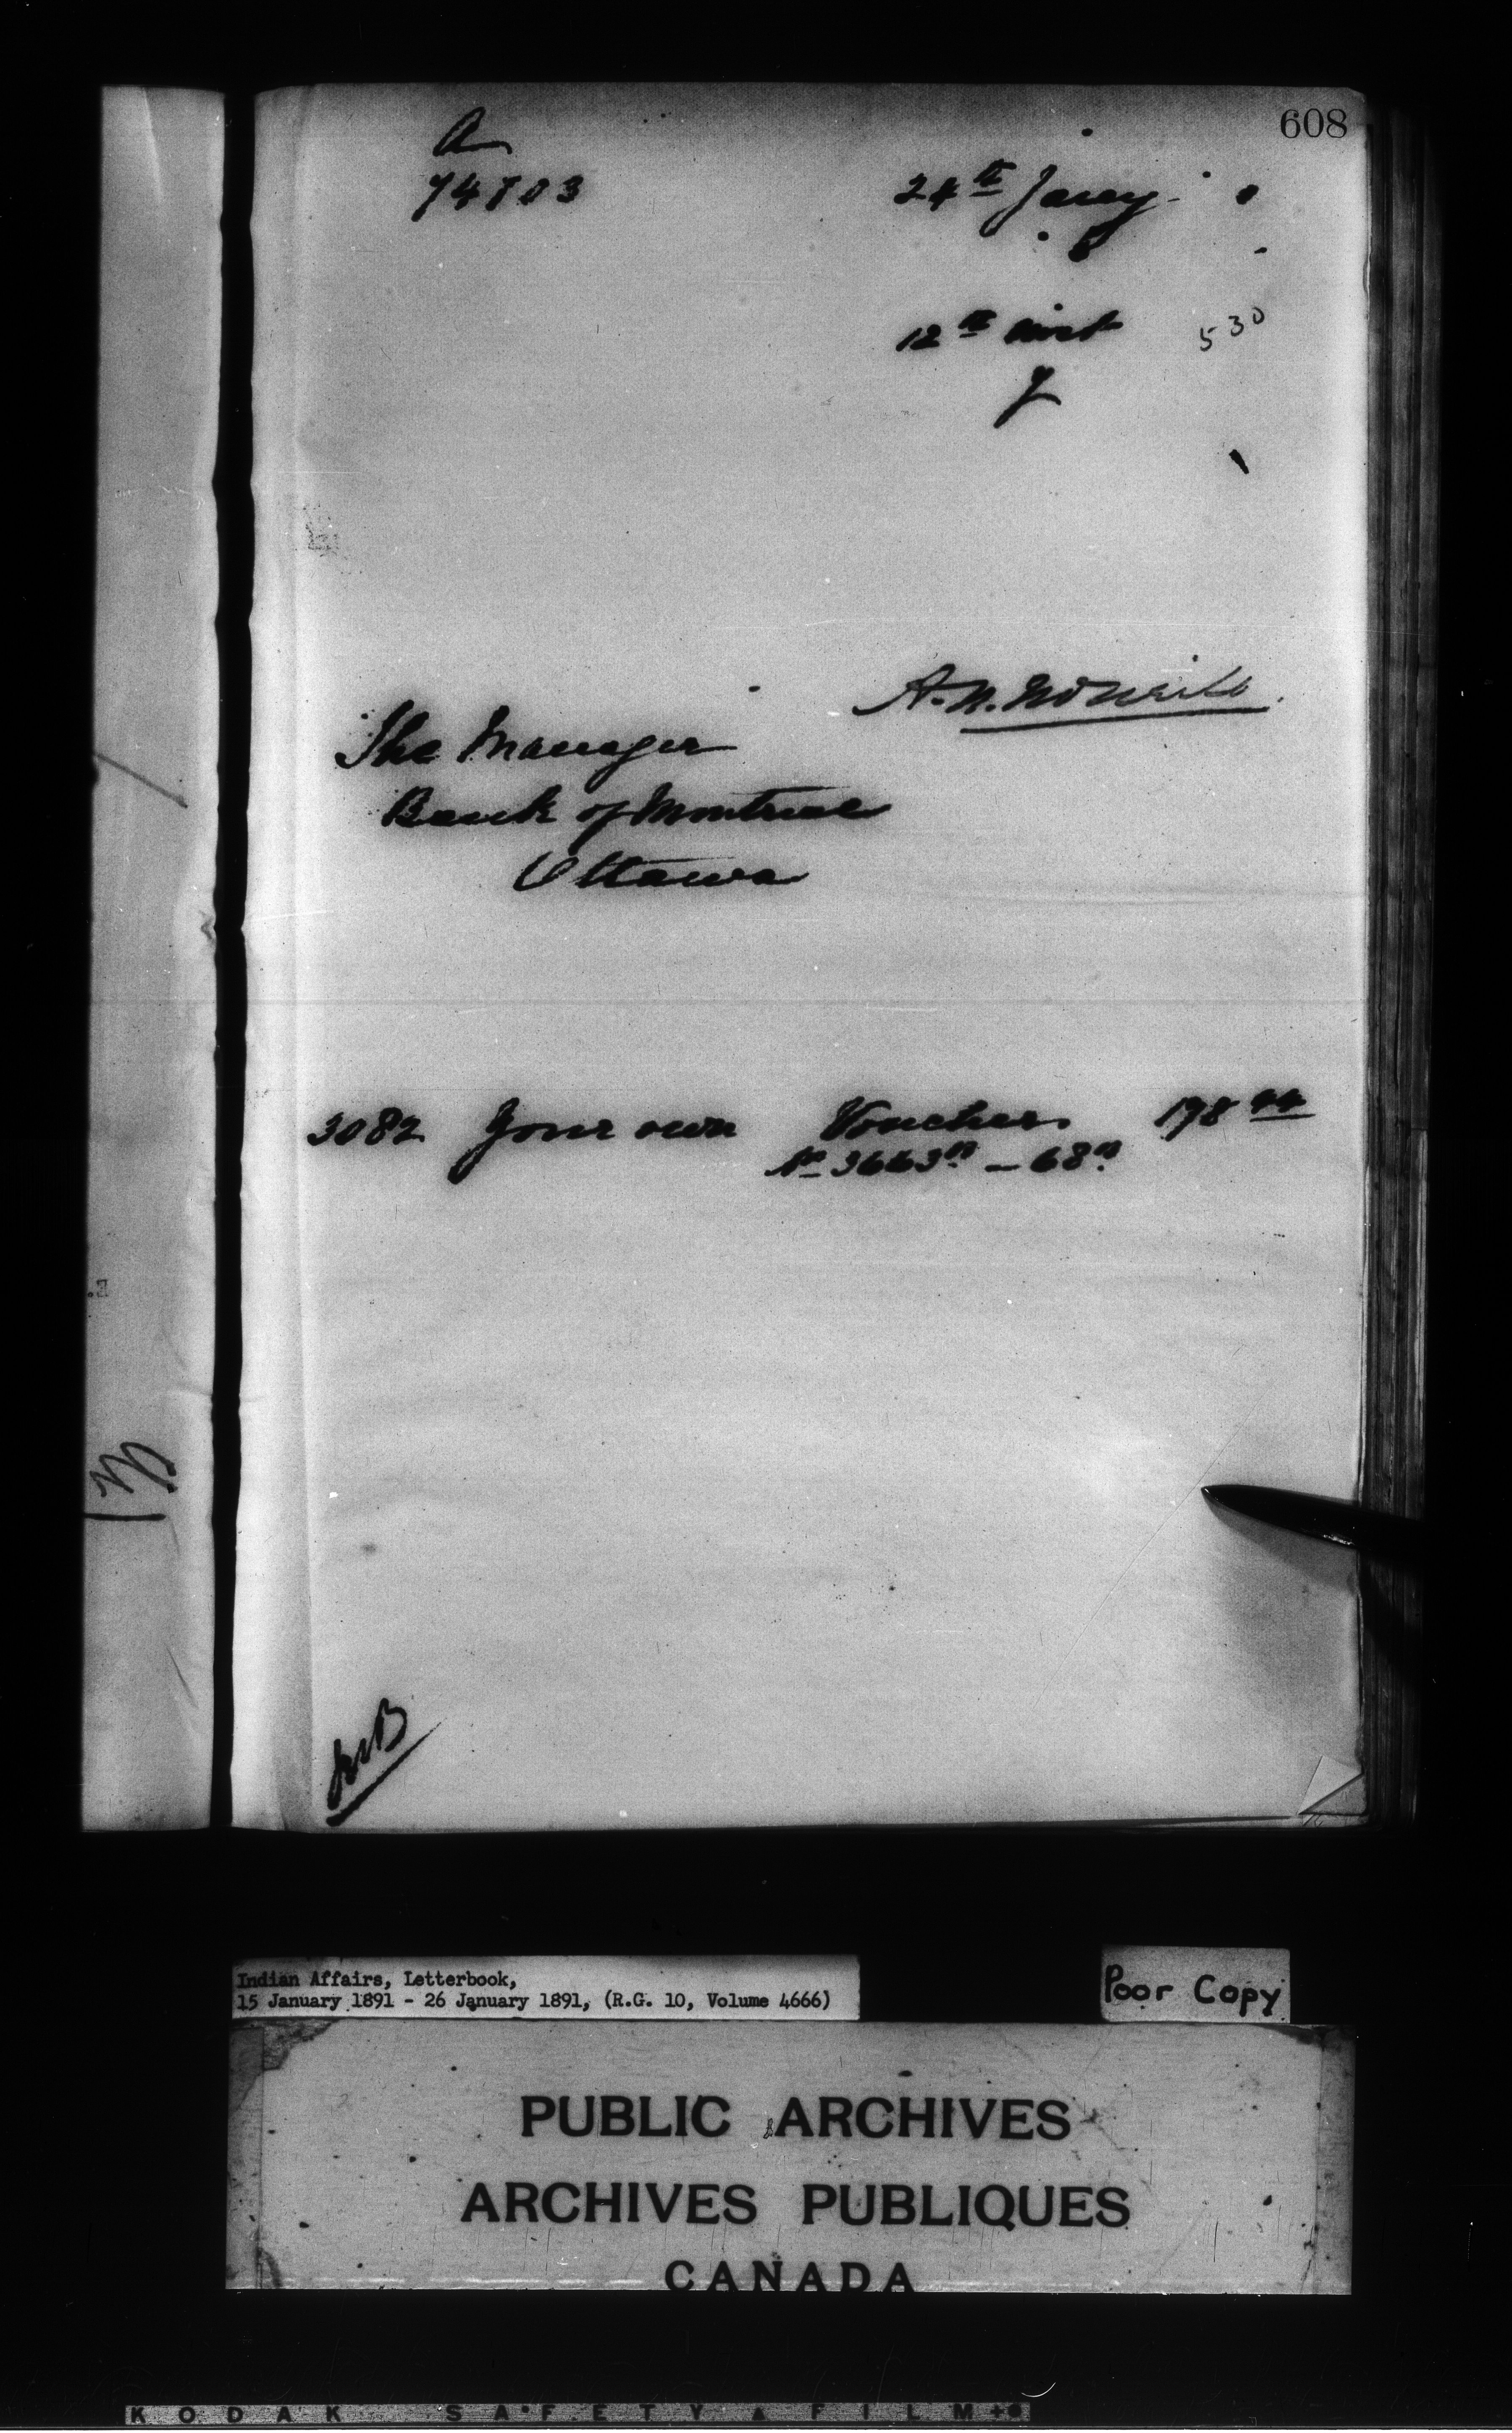 608
A
74803
24th Jany
12th inst
530
The Manager
Bank of Montreal
Ottawa
3082 Your own Vouchers 198 44
No 3663 - 68
Indian Affairs, Letterbook,
15 January 1891 - 26 January 1891, (R.G. 10, Volume 4666)
Poor Copy
PUBLIC ARCHIVES
ARCHIVES PUBLIQUES
CANADA
KODAK SAFETY FILM